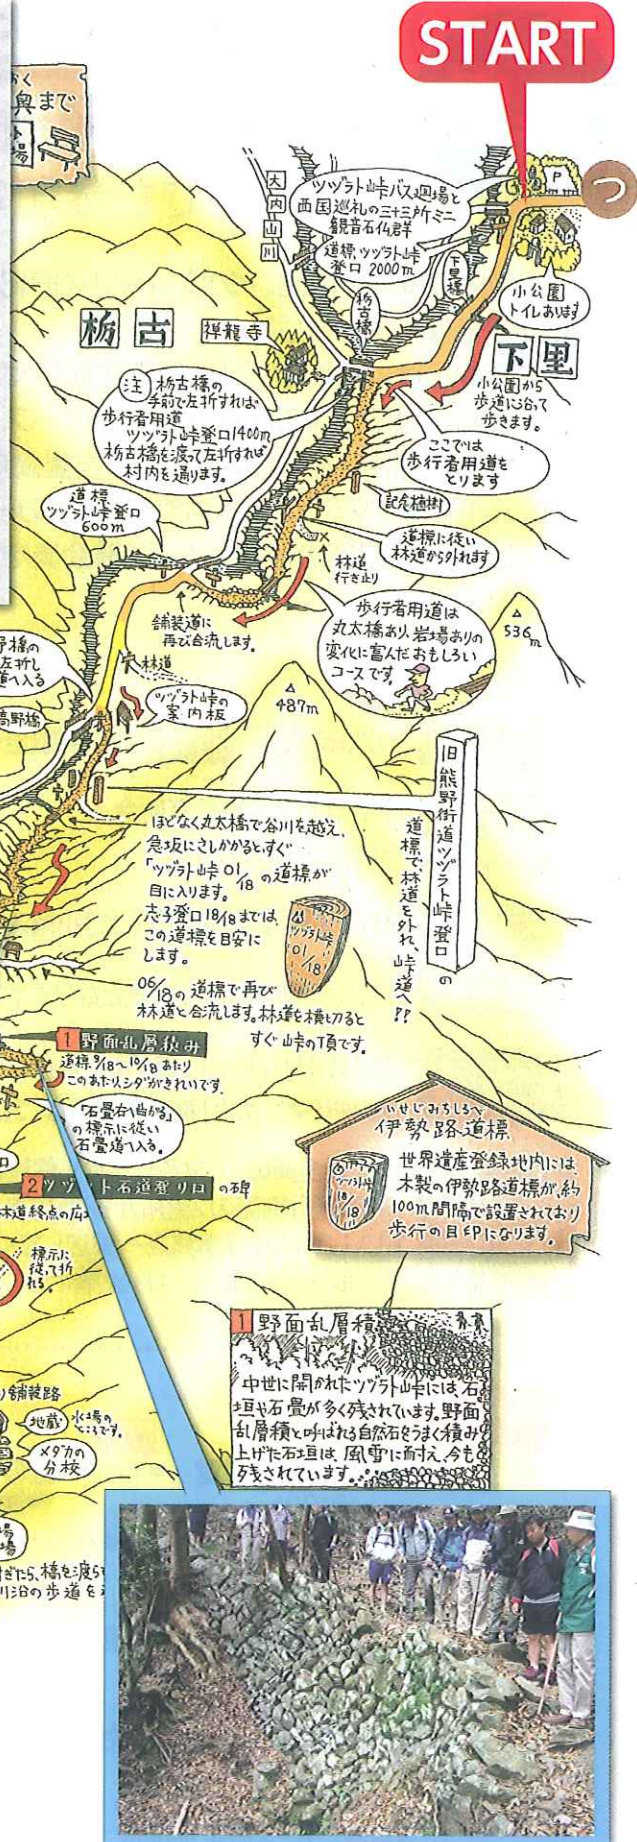 START
く
奥まで
場
P
つ
大内山川
ツヅラト峠バス廻場と
西国巡礼の三十三所ミニ
観音石仏群
道標、ツヅラト峠
登口 2000m
栃古橋
下里橋
小公園
トイレあります
栃古
禅龍寺
下里
小公園から
歩道に沿って
歩きます。
注 栃古橋の
手前で左折すれば
歩行者用道
ツヅラト峠登口1400m
栃古橋を渡って左折すれば
村内を通ります。
ここでは
歩行者用道を
とります
記念植樹
道標
ツヅラト峠登口
600m
道標に従い
林道から外れます
林道
行き止り
舗装道に
再び合流します。
歩行者用道は
丸太橋あり、岩場ありの
変化に富んだおもしろい
コースです。
536m
487m
野橋の
左折し
道へ入る
高野橋
林道
ツヅラト峠の
案内板
旧熊野街道ツヅラト峠登口
の
道標で、林道を外れ、峠道へ!!
ほどなく丸太橋で谷川を越え、
急坂にさしかかると、すぐ
「ツヅラト峠01/18の道標が
目に入ります。
志子登口18/18までは、
この道標を目安に
します。
ツヅラト峠
01/18
06/18の道標で再び
林道と合流します。林道を横切ると
すぐ峠の頂です。
1 野面乱層積み
道標9/18〜10/18あたり
このあたりシダがきれいです。
「石畳右へ曲がる」
の標示に従い
石畳道へ入る。
口
2 ツヅラト石道登り口 の碑
林道終点の広
標示に
従って折
れる。
いせじみちしるべ
伊勢路道標
ツヅラト峠
18/18
世界遺産登録地内には、
木製の伊勢路道標が、約
100m間隔で設置されており
歩行の目印になります。
1 野面乱層積
中世に開かれたツヅラト峠には、石
垣や石畳が多く残されています。野面
乱層積と呼ばれる自然石をうまく積み
上げた石垣は、風雪に耐え、今も
残されています。
舗装路
地蔵
水場の
ところです。
メダカの
分校
場
ぎたら、橋を渡らず
川沿の歩道を